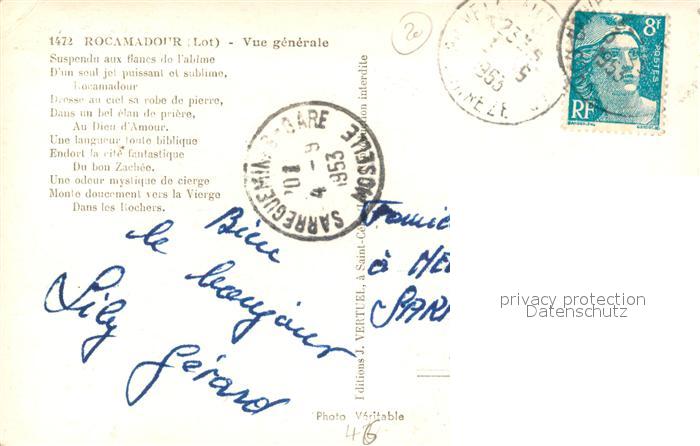 1472 ROCAMADOUR (Lot) - Vue générale
Suspendu aux flancs de l'abîme
D'un seul jet puissant et sublime,
Rocamadour
Dresse au ciel sa robe de pierre,
Dans un bel élan de prière,
Au Dieu d'Amour.
Une langueur toute biblique
Endort la cité fantastique
Du bon Zachée.
Une odeur mystique de cierge
Monte doucement vers la Vierge
Dans les Rochers.
Bien
le bonjour
Lily Gérard
Editions J. VERTUEL, à Saint-Cé
interdite
Photo Véritable
46
20
SARREGUEMINES-GARE
MOSELLE
4 - 9
1953
1953
8F
POSTES
RF
à
privacy protection
Datenschutz